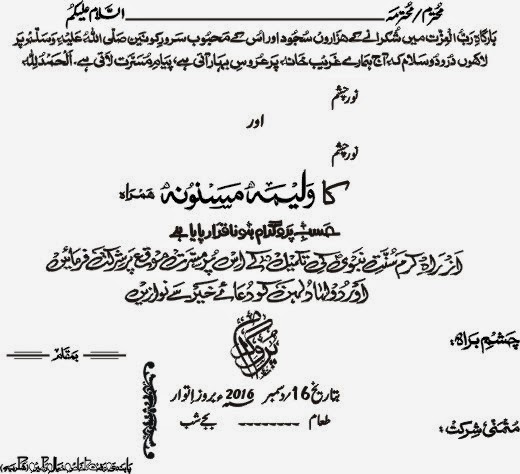 محترم/محترمہ ــــــــــــــــــــــــ السّلام علیکم
بارگاہِ ربُّ العزّت میں شکرانے کے ہزاروں سجود اور اس کے محبوب سرورِ کونین صلّی اللہ علیہ وسلّم پر
لاکھوں درود و سلام کہ آج ہمارے غریب خانہ پر عروسِ بہار آتی ہے، پیامِ مسرّت لاتی ہے۔ الحمدللہ
نورِ چشم
اور
نورِ چشم
کا ولیمہ مسنونہ ہمراہ
حسبِ پروگرام ہونا قرار پایا ہے
از راہِ کرم سنّتِ نبویؐ کی تکمیل کے اس پُر مسرّت موقع پر شرکت فرمائیں
اور دولہا دلہن کو دعائے خیر سے نوازیں
پروگرام
چشم براہ:
بمقام
بتاریخ 16/دسمبر 2016ء بروز اتوار
طعام -------- بجے شب
متمنی شرکت: